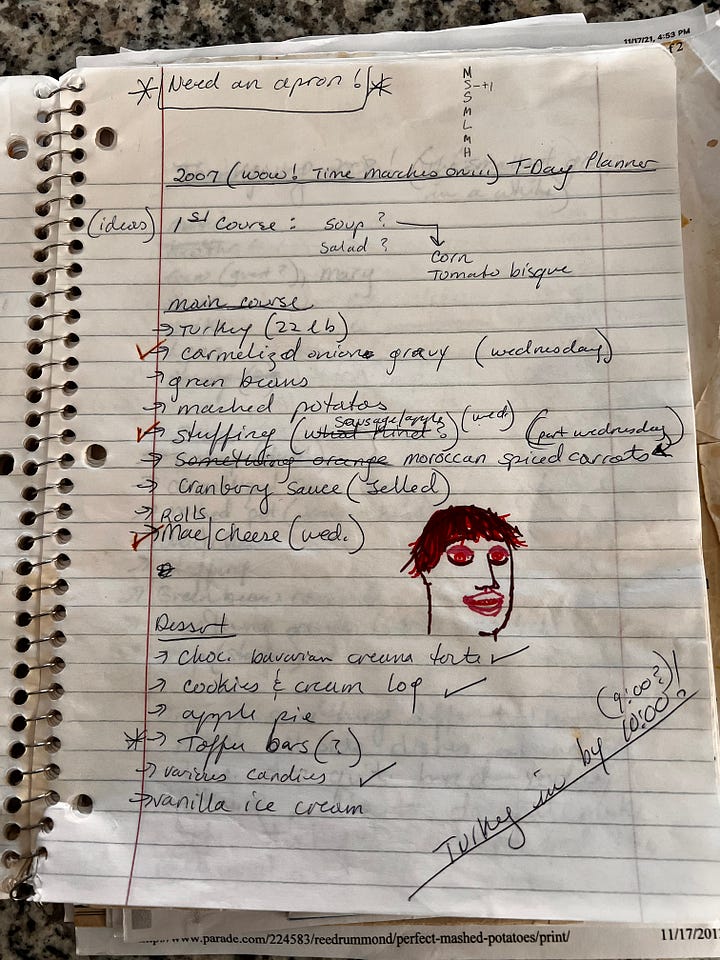 11/17/21, 4:53 PM
f 2
* Need an apron! *
M
S-+1
S
M
L
M
H
2007 (wow! Time marches on!!!) T-Day Planner
(ideas) 1st Course: soup? → corn
Salad? Tomato bisque
main course
→ Turkey (22 lb)
✓→ carmelized onion gravy (wednesday)
→ green beans
→ mashed potatos
sausage/apple
✓→ stuffing (what kind?) (wed.) (part wednesday)
→ something orange moroccan spiced carrots
→ Cranberry sauce (Jelled)
→ Rolls
✓→ Mac/cheese (wed.)
Dessert
→ choc. bavarian creama torte ✓
→ cookies & cream log ✓
→ apple pie
*→ Toffee bars (?)
→ various candies ✓
→ vanilla ice cream
(9:00?)!
Turkey in by 10:00!
www.parade.com/224583/reedrummond/perfect-mashed-potatoes/print/
11/17/201